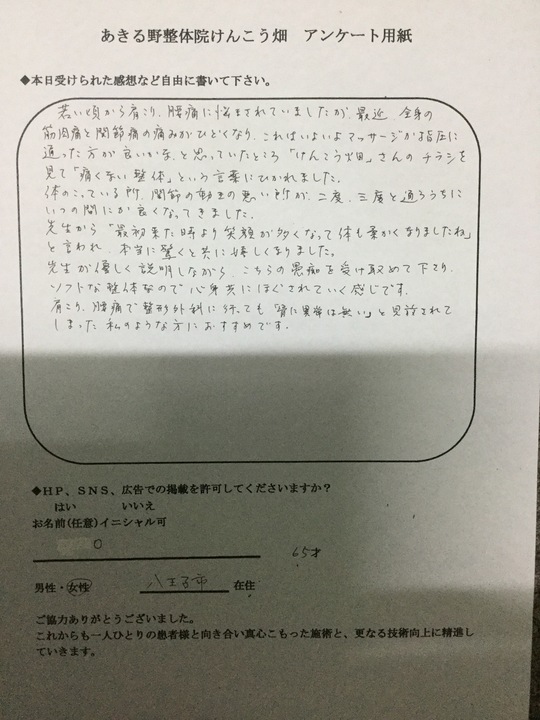 あきる野整体院けんこう畑　アンケート用紙
◆本日受けられた感想など自由に書いて下さい。
若い頃から肩こり、腰痛に悩まされていましたが、最近、全身の
筋肉痛と関節痛の痛みがひどくなり、これはいよいよマッサージか指圧に
通った方が良いかな、と思っていたところ「けんこう畑」さんのチラシを
見て「痛くない整体」という言葉にひかれました。
体のこっている所、関節の動きの悪い所が、二度、三度と通ううちに
いつの間にか良くなってきました。
先生から「最初来た時より笑顔が多くなって体も柔かくなりましたね」
と言われ、本当に驚くと共に嬉しくなりました。
先生が優しく説明しながら、こちらの愚痴を受け取めて下さり、
ソフトな整体なので心身共にほぐされていく感じです。
肩こり、腰痛で整形外科に行っても「骨に異常は無い」と見診されて
しまった私のような方におすすめです。
◆ＨＰ、ＳＮＳ、広告での掲載を許可してくださいますか？
はい　　いいえ
お名前(任意)イニシャル可
O　65才
男性・女性　八王子市　在住
ご協力ありがとうございました。
これからも一人ひとりの患者様と向き合い真心こもった施術と、更なる技術向上に精進し
ていきます。